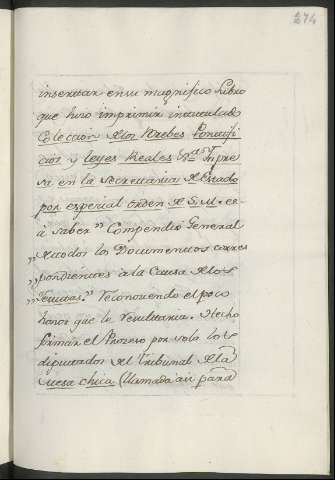 274
insertar en su magnifico Libro
que hizo imprimir intitulado
Coleccion de los Brebes Pontifi
cios y leyes Reales &ra Impre
sa en la Secretaria de Estado
por especial orden de S.M. es
à saber " Compendio General
" de todos los Documentos corres
" pondientes a la Causa de los
" Jesuitas." Reconociendo el poco
honor que le resultaria. Hecho
formar el Proceso por solo los
diputados del Tribunal de la
mesa chica (llamada asi para